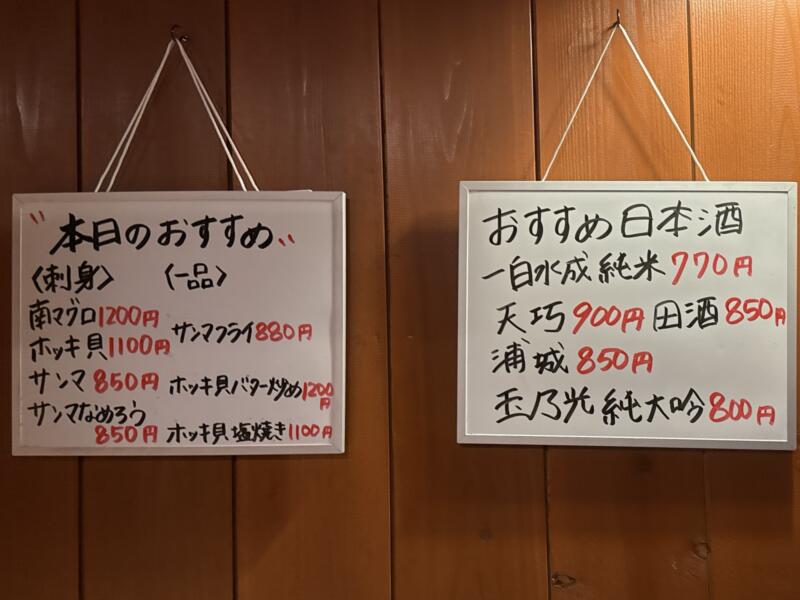 〝本日のおすすめ〟
〈刺身〉
南マグロ1200円
ホッキ貝1100円
サンマ 850円
サンマなめろう
850円
〈一品〉
サンマフライ880円
ホッキ貝バター炒め1200
円
ホッキ貝塩焼き1100円
おすすめ日本酒
一白水成 純米 770円
天巧 900円 田酒 850円
浦城 850円
玉乃光 純大吟 800円